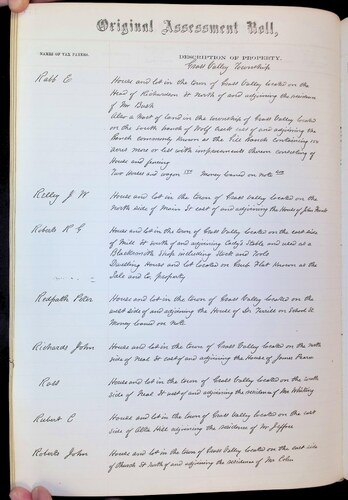 Original Assessment Roll,
NAMES OF TAX PAYERS.
DESCRIPTION OF PROPERTY.
Grass Valley Township
Rabb E
House and lot in the town of Grass Valley located on the
Head of Richardson St north of and adjoining the residence
of Mr Bush
Also a tract of land in the township of Grass Valley located
on the south branch of Wolf Creek east of and adjoining the
Ranch commonly known as the Ranch containing
acres more or less with improvements thereon consisting of
House and fencing
Two Horses and wagon Money loaned on note
Relley J W
House and lot in the town of Grass Valley located on the
north side of Main St east of and adjoining the House of John
Roberts R G
House and lot in the town of Grass Valley located on the east side
of Mill St south of and adjoining Stable and used as a
Blacksmith Shop including Stock and Tools
Dwelling House and lot located on Flat known as the
Dale and Co property
Redpath Peter
House and lot in the town of Grass Valley located on the
east side of and adjoining the House of Dr on School St
Money loaned on note
Richards John
House and lot in the town of Grass Valley located on the north
side of Neal St east of and adjoining the House of James Pearce
Ross
House and lot in the town of Grass Valley located on the north
side of Neal St west of and adjoining the residence of Mr Whiting
Rubert E
House and lot in the town of Grass Valley located on the east
side of Alta Hill adjoining the residence of Mr Jeffree
Roberts John
House and lot in the town of Grass Valley located on the east side
of Church St south of and adjoining the residence of Mr